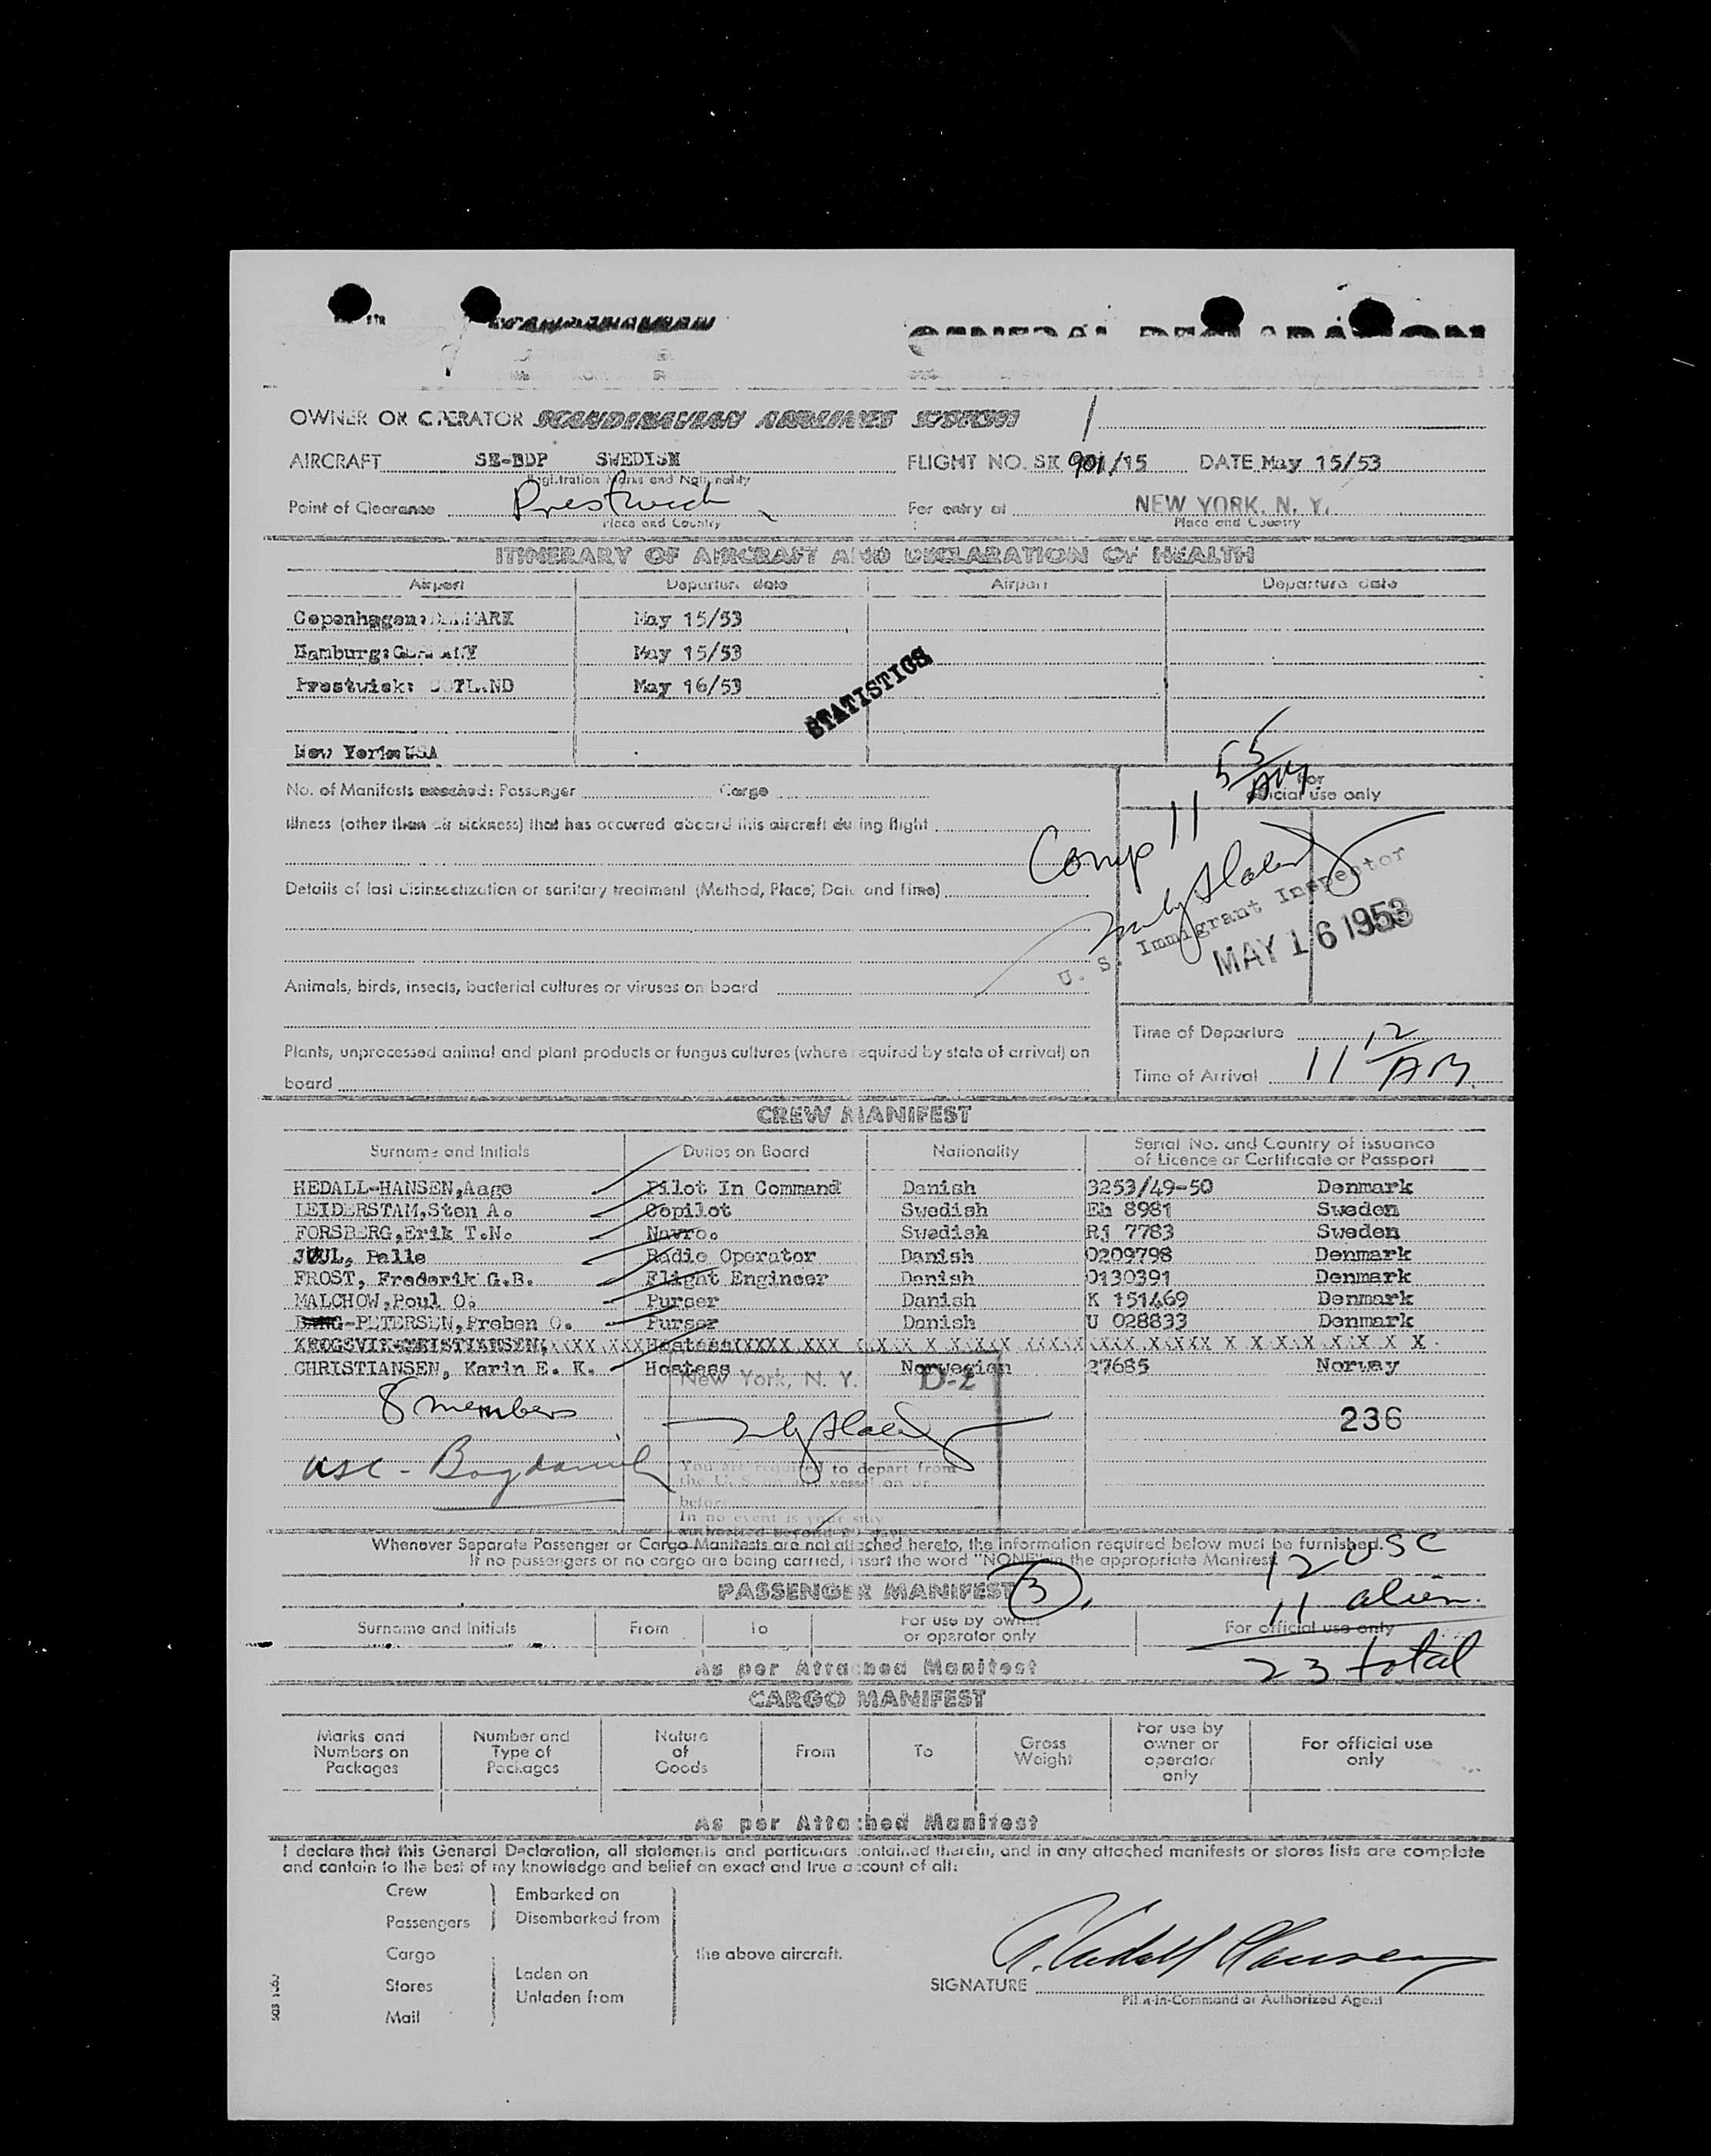 GENERAL DECLARATION
OWNER OR OPERATOR SCANDINAVIAN AIRLINES SYSTEM
AIRCRAFT SE-BDP SWEDISH FLIGHT NO. SK 901/15 DATE May 15/53
Registration Marks and Nationality
Point of Clearance Prestwick For entry at NEW YORK, N. Y.
Place and Country Place and Country
ITINERARY OF AIRCRAFT AND DECLARATION OF HEALTH
Airport Departure date Airport Departure date
Copenhagen: DENMARK May 15/53
Hamburg: GERMANY May 15/53
Prestwick: SCOTLAND May 16/53
STATISTICS
New York: USA
No. of Manifests attached: Passenger Cargo
For official use only
Comp 11 55 AM
Illness (other than air sickness) that has occurred aboard this aircraft during flight
Details of last disinsectization or sanitary treatment (Method, Place, Date and Time)
U. S. Immigrant Inspector
MAY 16 1953
Animals, birds, insects, bacterial cultures or viruses on board
Plants, unprocessed animal and plant products or fungus cultures (where required by state of arrival) on
board
Time of Departure
Time of Arrival 11 12 AM
CREW MANIFEST
Surname and Initials Duties on Board Nationality Serial No. and Country of issuance
of Licence or Certificate or Passport
HEDALL-HANSEN, Aage Pilot In Command Danish 3253/49-50 Denmark
LEIDERSTAM, Sten A. Copilot Swedish Eh 8981 Sweden
FORSBERG, Erik T.N. Navro. Swedish Rj 7783 Sweden
JUUL, Palle Radio Operator Danish 0209798 Denmark
FROST, Frederik G.B. Flight Engineer Danish 0130391 Denmark
MALCHOW, Poul O. Purser Danish K 151469 Denmark
BANG-PETERSEN, Preben O. Purser Danish U 028833 Denmark
KROGSVIK-CHRISTIANSEN, Hostess
CHRISTIANSEN, Karin E. K. Hostess Norwegian 27685 Norway
New York, N. Y. D-2
8 members 236
USC -
You are required to depart from
the U. S. on the vessel on or
before
In no event is your stay
authorized beyond 29 days
Whenever Separate Passenger or Cargo Manifests are not attached hereto, the information required below must be furnished.
If no passengers or no cargo are being carried, insert the word "NONE" in the appropriate Manifest.
12 USC
PASSENGER MANIFEST 3
11 alien
Surname and Initials From To For use by owner
or operator only For official use only
23 total
As per Attached Manifest
CARGO MANIFEST
Marks and Numbers on Packages Number and Type of Packages Nature of Goods From To Gross Weight For use by owner or operator only For official use only
As per Attached Manifest
I declare that this General Declaration, all statements and particulars contained therein, and in any attached manifests or stores lists are complete
and contain to the best of my knowledge and belief an exact and true account of all:
Crew Embarked on
Passengers Disembarked from
Cargo the above aircraft.
Stores Laden on
Unladen from
Mail
SIGNATURE A. Hedall Hansen
Pilot-in-Command or Authorized Agent